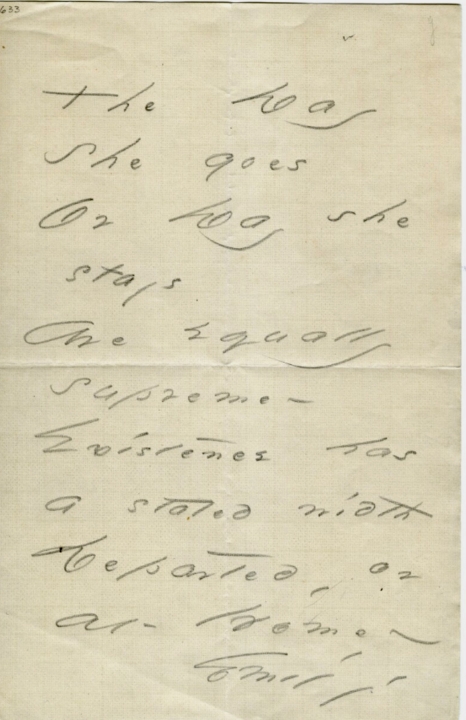 633
The Day
She goes
Or Day she
stays
Are Equally
supreme -
Existence has
a stated width
Departed, or
at Home -
Emily.